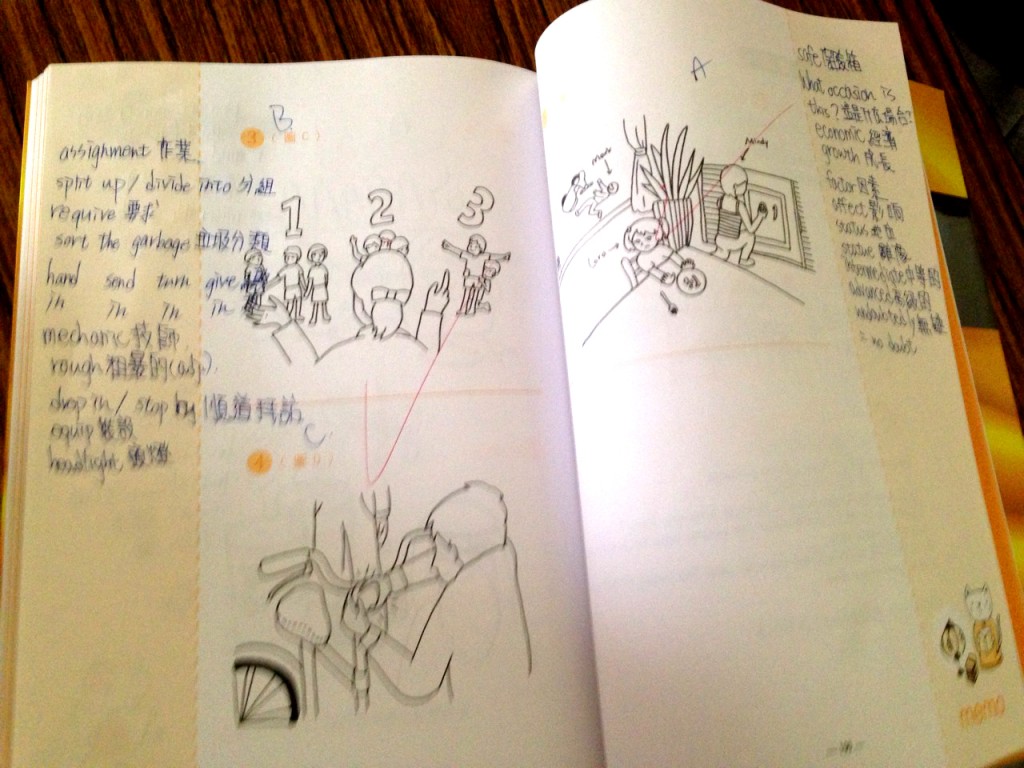 B
3 (圖C)
assignment 作業
split up / divide into 分組
require 要求
sort the garbage 垃圾分類
hand send turn give
in in in in
mechanic 技師
rough 粗暴的(adj).
drop in / stop by 順道拜訪
equip 裝設
headlight
1 2 3
C
4 (圖D)
A
safe 保險箱
What occasion is
this? 這是什麼場合?
economic 經濟
growth 成長
factor 因素
affect 影響
status
statue 雕像
intermediate 中等的
advanced 高級的
undoubtedly 無疑
= no doubt
Mark
Mindy
memo